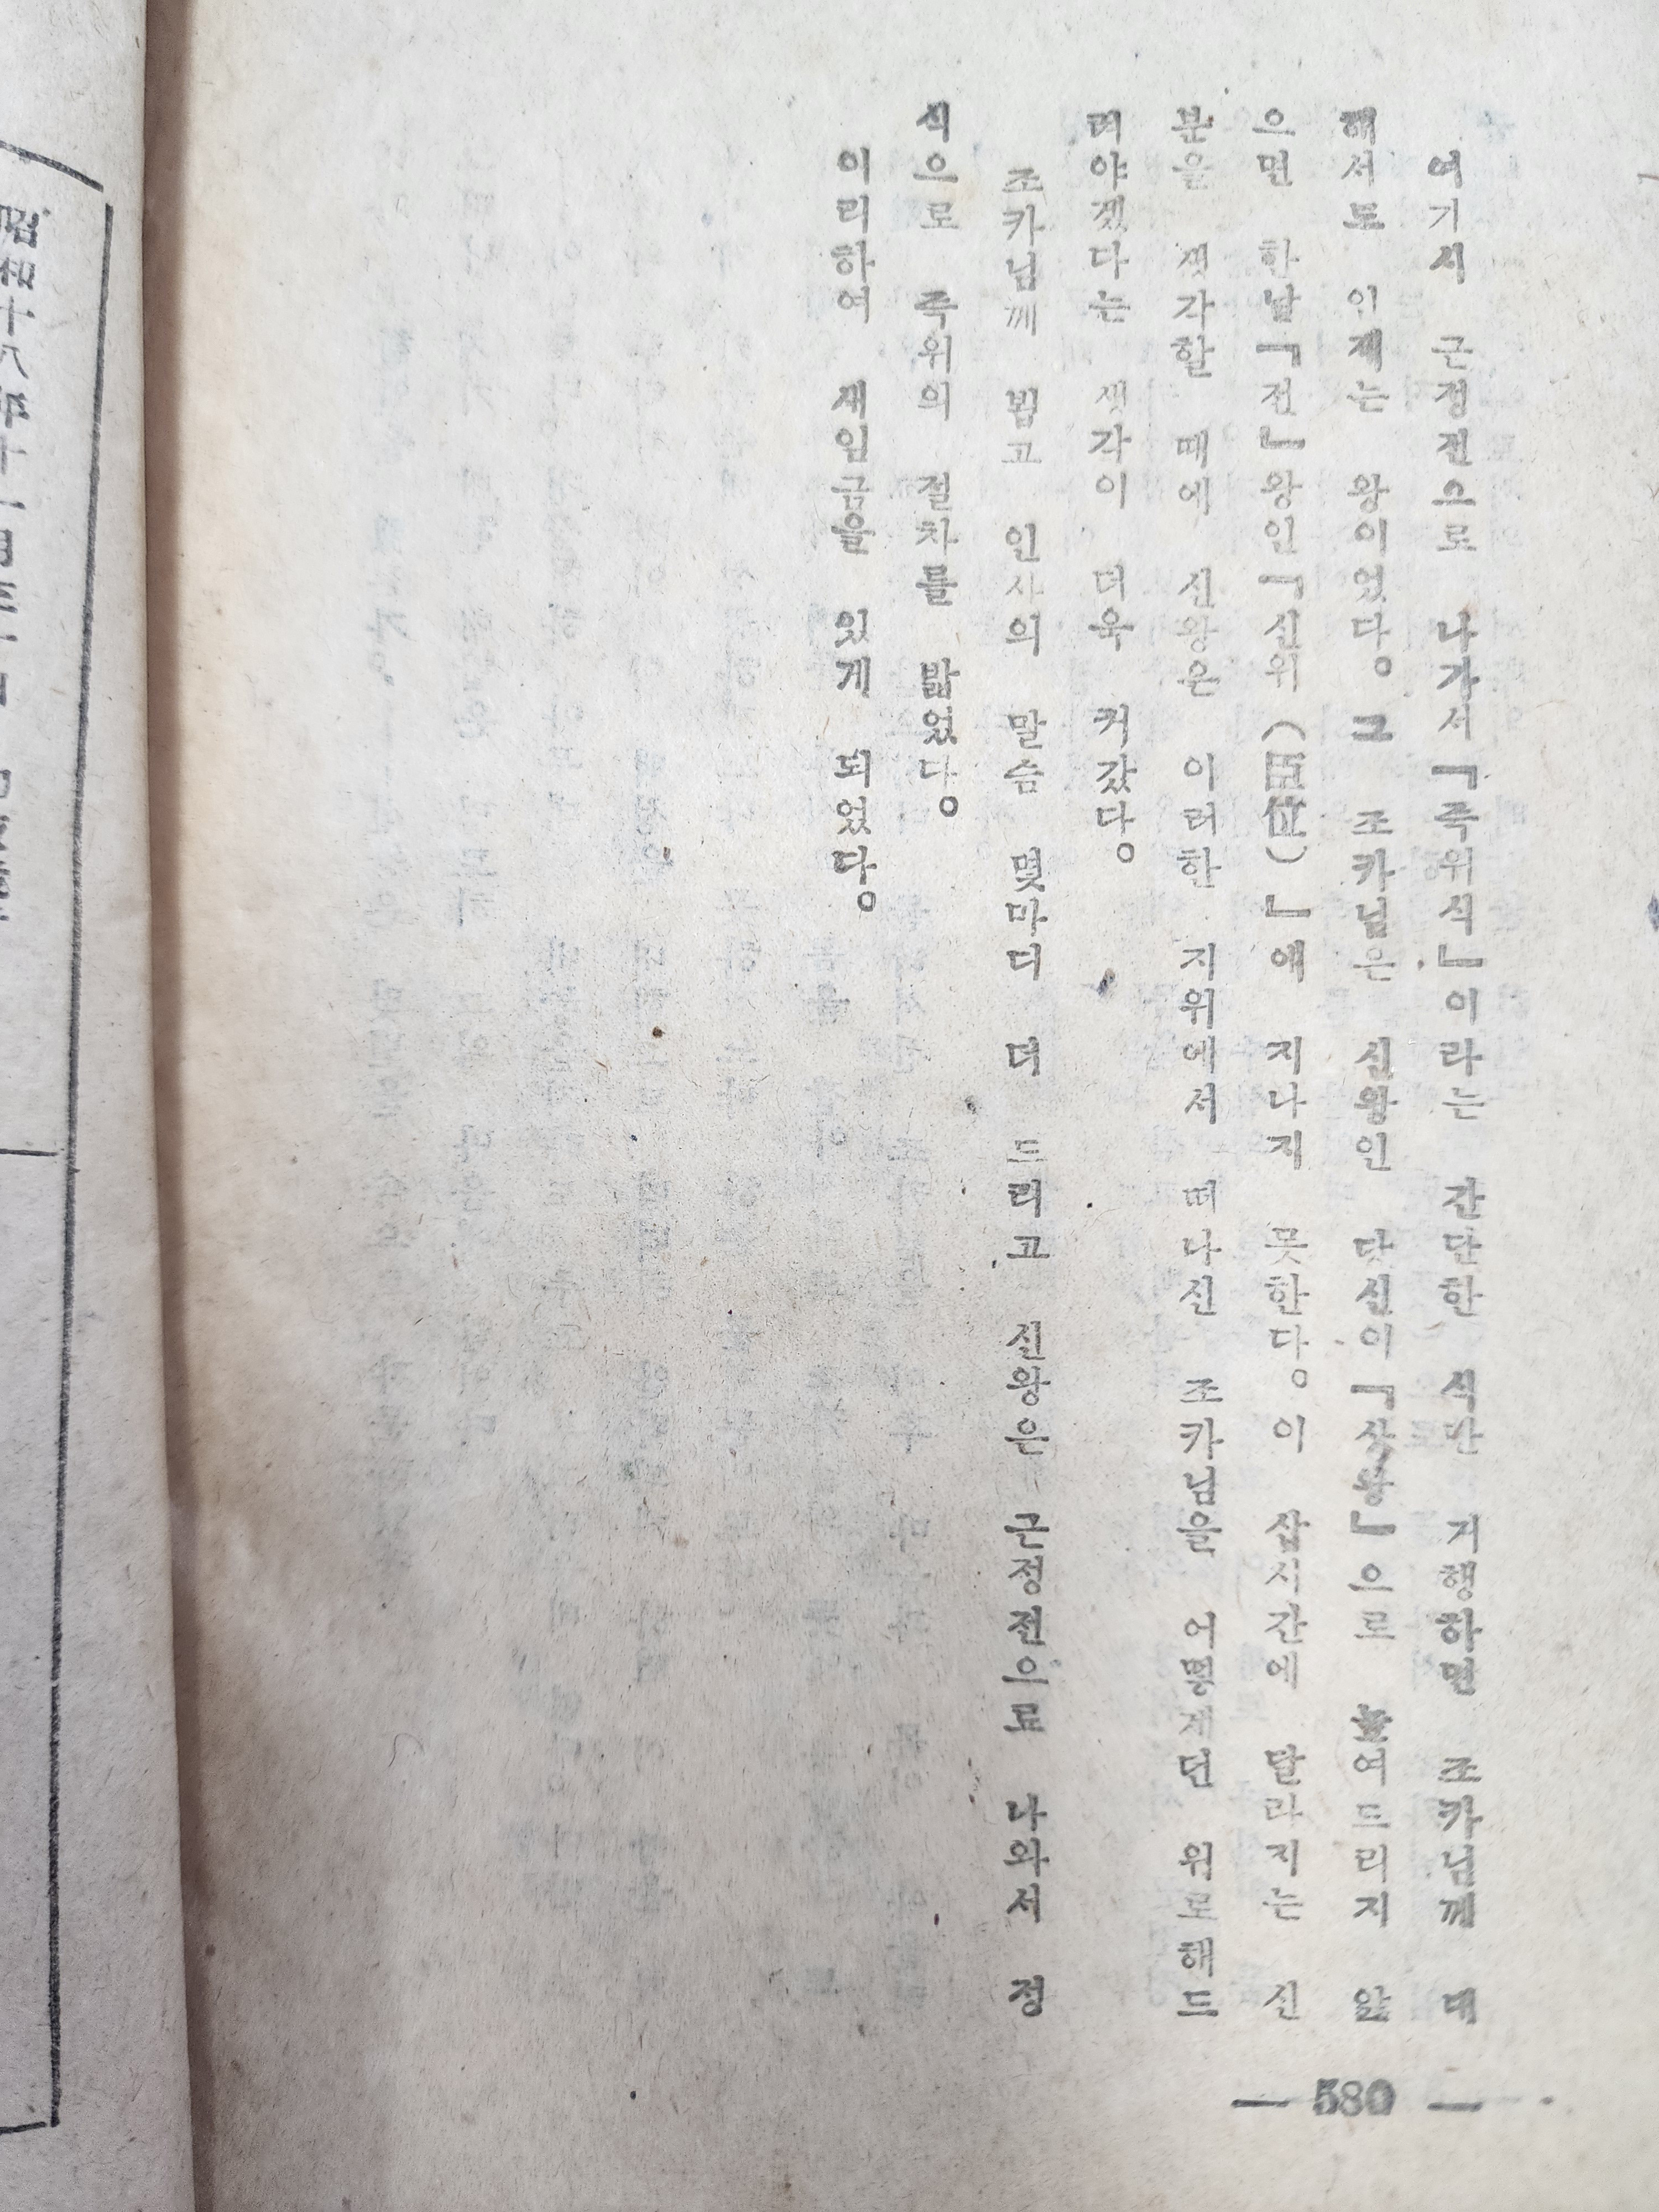 여기서 근정전으로 나가서『즉위식』이라는 간단한 식만 거행하면 조카님께 대
해서도 인제는 왕이었다。그 조카님은 신왕인 당신이『상왕』으로 높여드리지 않
으면 한낱『전』왕인『신위(臣位)』에 지나지 못한다。이 삽시간에 달라지는 신
분을 생각할 때에 신왕은 이러한 지위에서 떠나신 조카님을 어떻게던 위로해드
려야겠다는 생각이 더욱 커갔다。
조카님께 뵙고 인사의 말슴 몇마디 더 드리고 신왕은 근정전으로 나와서 정
식으로 즉위의 절차를 밟었다。
이리하여 새임금을 있게 되었다。
— 580 —
昭和十八年十一月